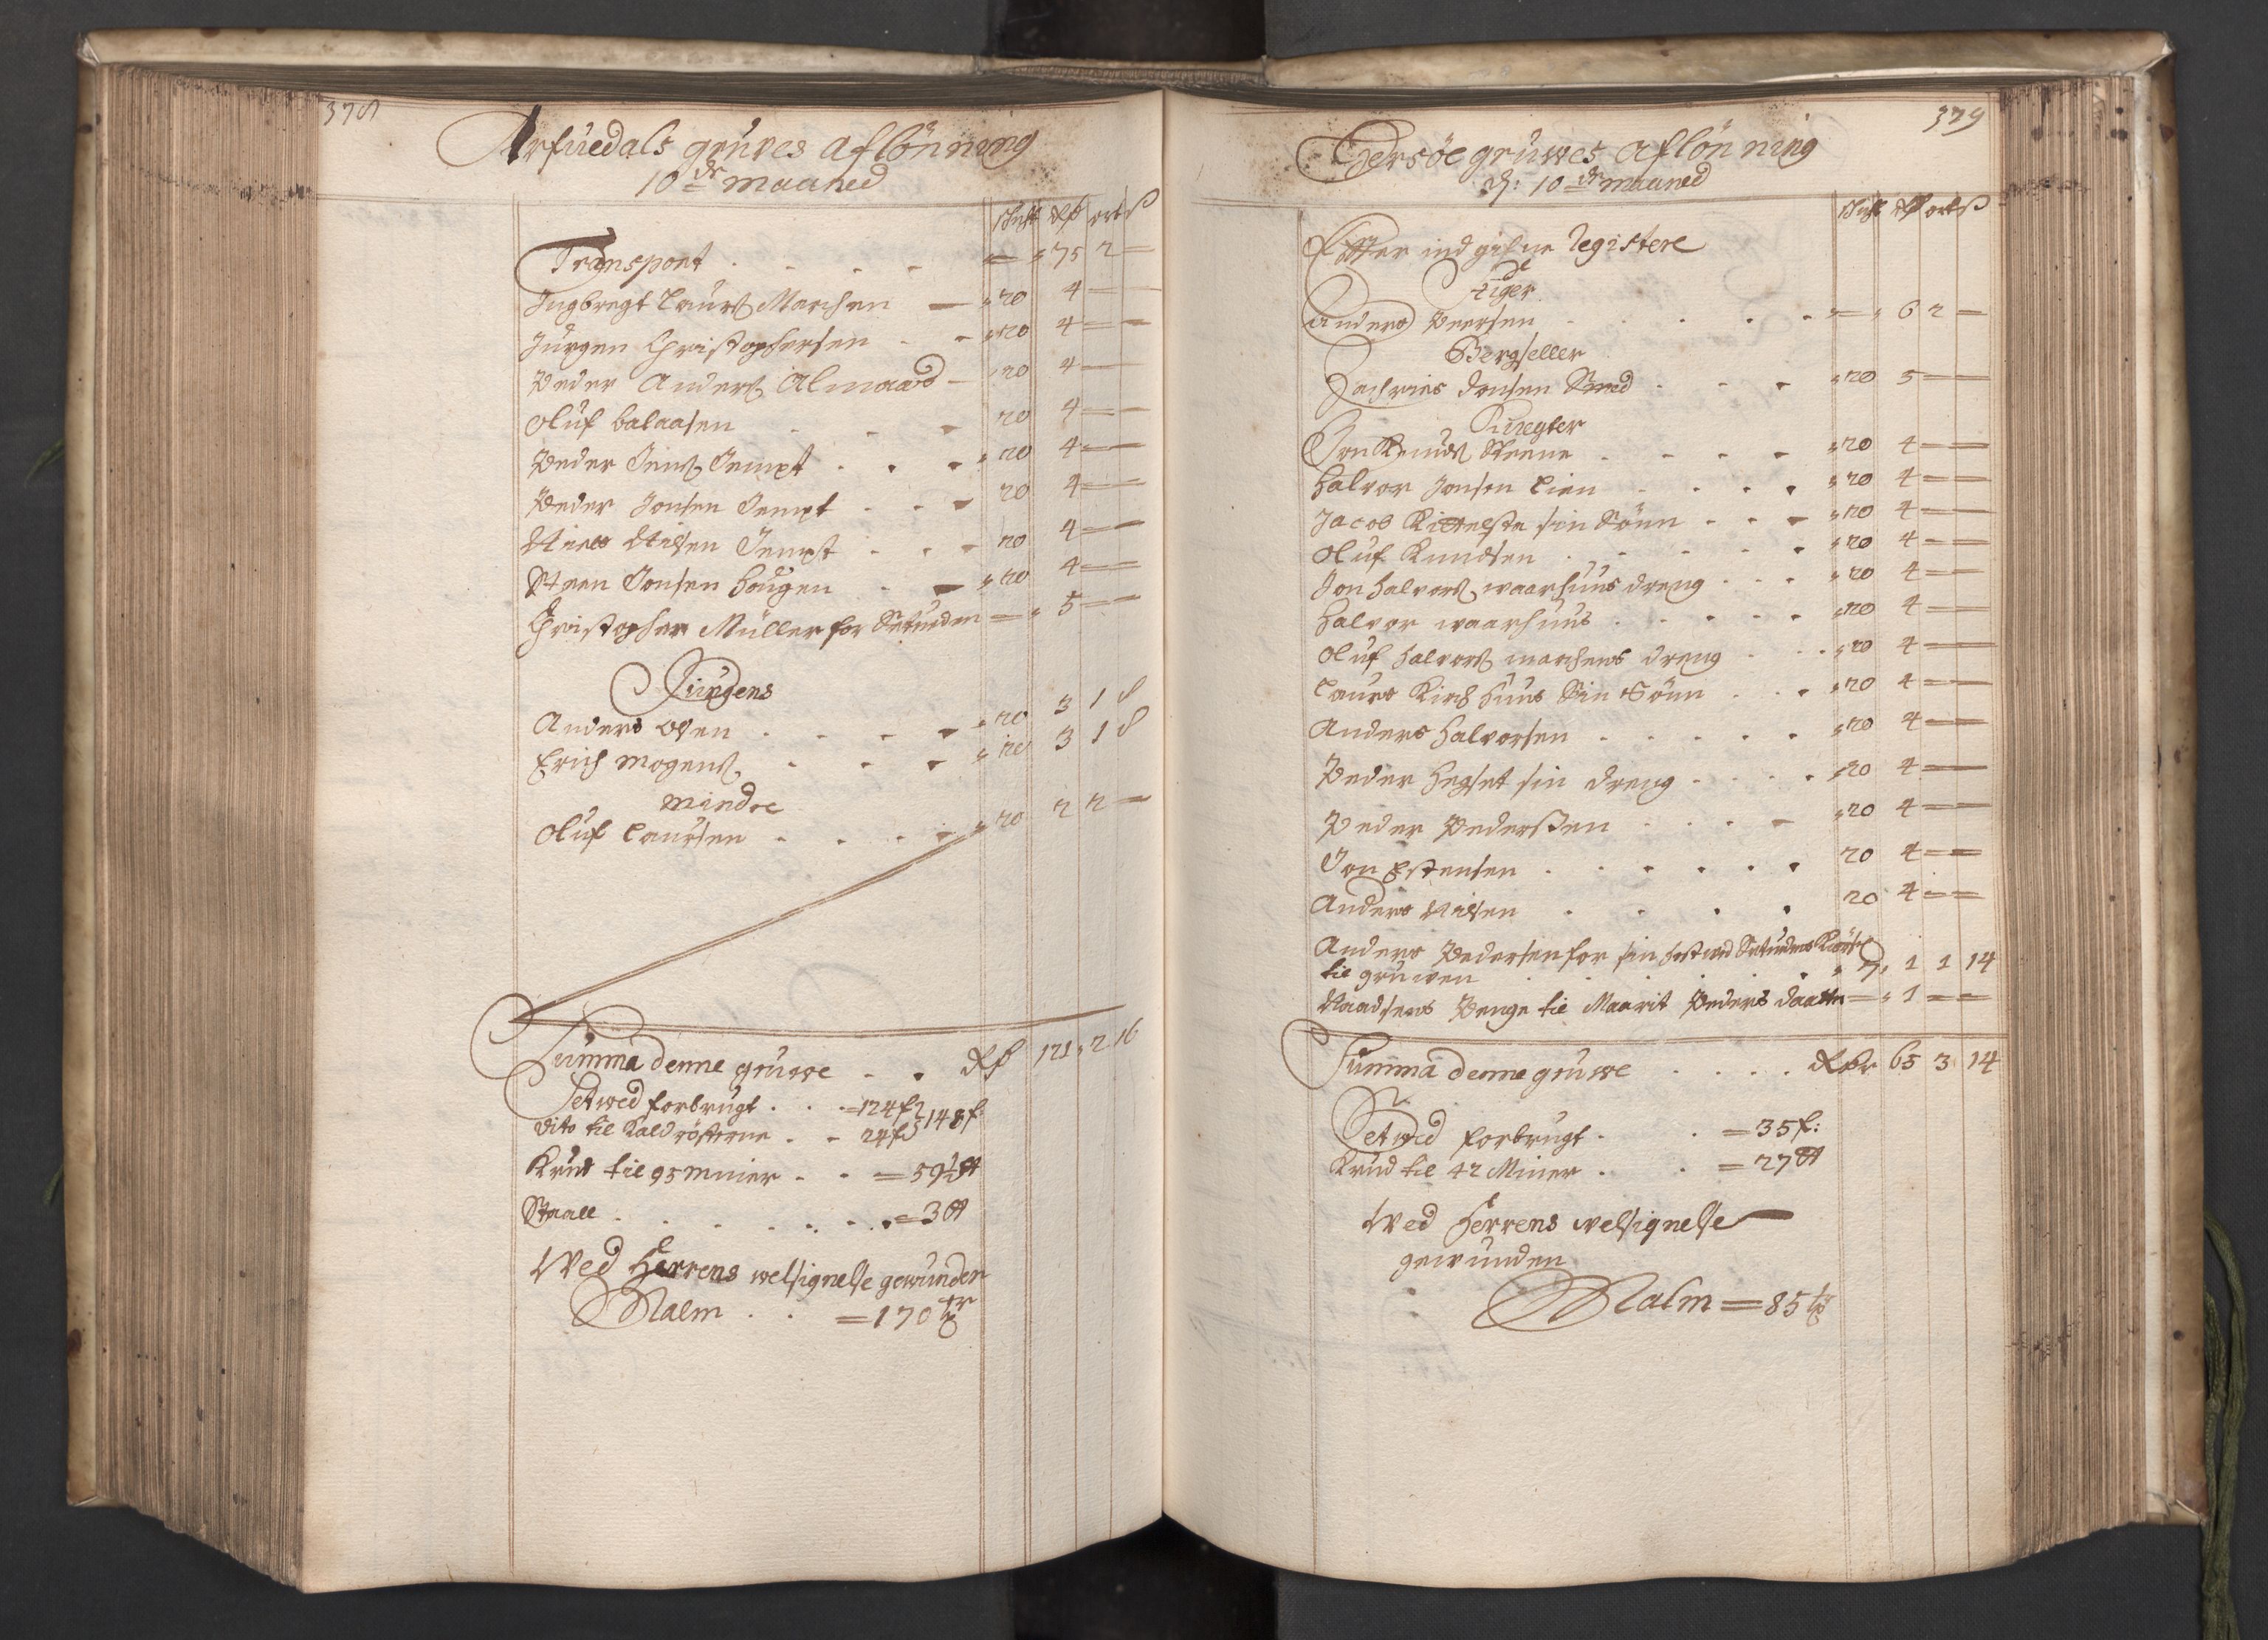 378
Arfuedals gruves aflönning
10de maaned
schicht Rd ort ß
Transport . . . . = " 75 2 —
Ingbregt Laurs Marchen — " 20 4 — —
Jürgen Christophersen . - " 20 4 — —
Peder Anders Almaas - " 20 4 — —
Oluf balaasen . . . 20 4 — —
Peder Jens Tempt . . . " 20 4 — —
Peder Jonsen Tempt . . . 20 4 — —
Niels Nilsen Tempt . . . 20 4 — —
Steen Jonsen haugen . . " 20 4 — —
Christopher Müller for Setveden = " 5 — —
Jungens
Anders Oven . . . . " 20 3 1 8
Erich Mogens . . . " 20 3 1 8
Mindre
Oluf Laursen . . . . " 20 2 2 —
Summa denne gruwe . . Rd 121 " 2 16
Setwed forbrugt . . . = 124 f 148 f:
dito til Kaldrösterne . . 24 f
Krud til 95 Minier . . = 59½ ℔
Staall . . . . . . = 3 ℔
Wed Herrens welsignelse gewunden
Malm . . = 170 tr
379
Hersöe gruwes aflönning
d: 10de maaned
schicht Rd ort ß
Effter indgifne Registere
Stiger
Anders Peersen . . . . . = " 6 2 —
Bergseller
Zachries Jonsen Smed . . . " 20 5 — —
Knegter
Jon Knuds Steene . . . . " 20 4 — —
Halvor Jonsen Lien . . . . " 20 4 — —
Jacob Kittelsße sin Sönn . . . " 20 4 — —
Oluf Knudsen . . . . . " 20 4 — —
Jon Halvors waarhuus dreng . . . " 20 4 — —
Halvor waarhuus . . . . . " 20 4 — —
Oluf Halvors marchens dreng . . . " 20 4 — —
Laurs Kirchhuus Sin Sönn . . . " 20 4 — —
Anders Halvorsen . . . . . " 20 4 — —
Peder Hegset sin dreng . . . . " 20 4 — —
Peder Pederßen . . . . " 20 4 — —
Jon Estensen . . . . . . 20 4 — —
Anders Nilsen . . . . 20 4 — —
Anders Pedersen for sin hest ved Setvedens Kiörsel
til gruwen . . . . . . " 7 " 1 1 14
Naadsens Penge til Maarit Peders daatter = " 1 — —
Summa denne gruwe . . . . Rdr 65 3 14
Setwed forbrugt . . = 35 f:
Krud til 42 Miner . . = 27 ℔
Wed Herrens welsignelse
gewunden
Malm = 85 tr